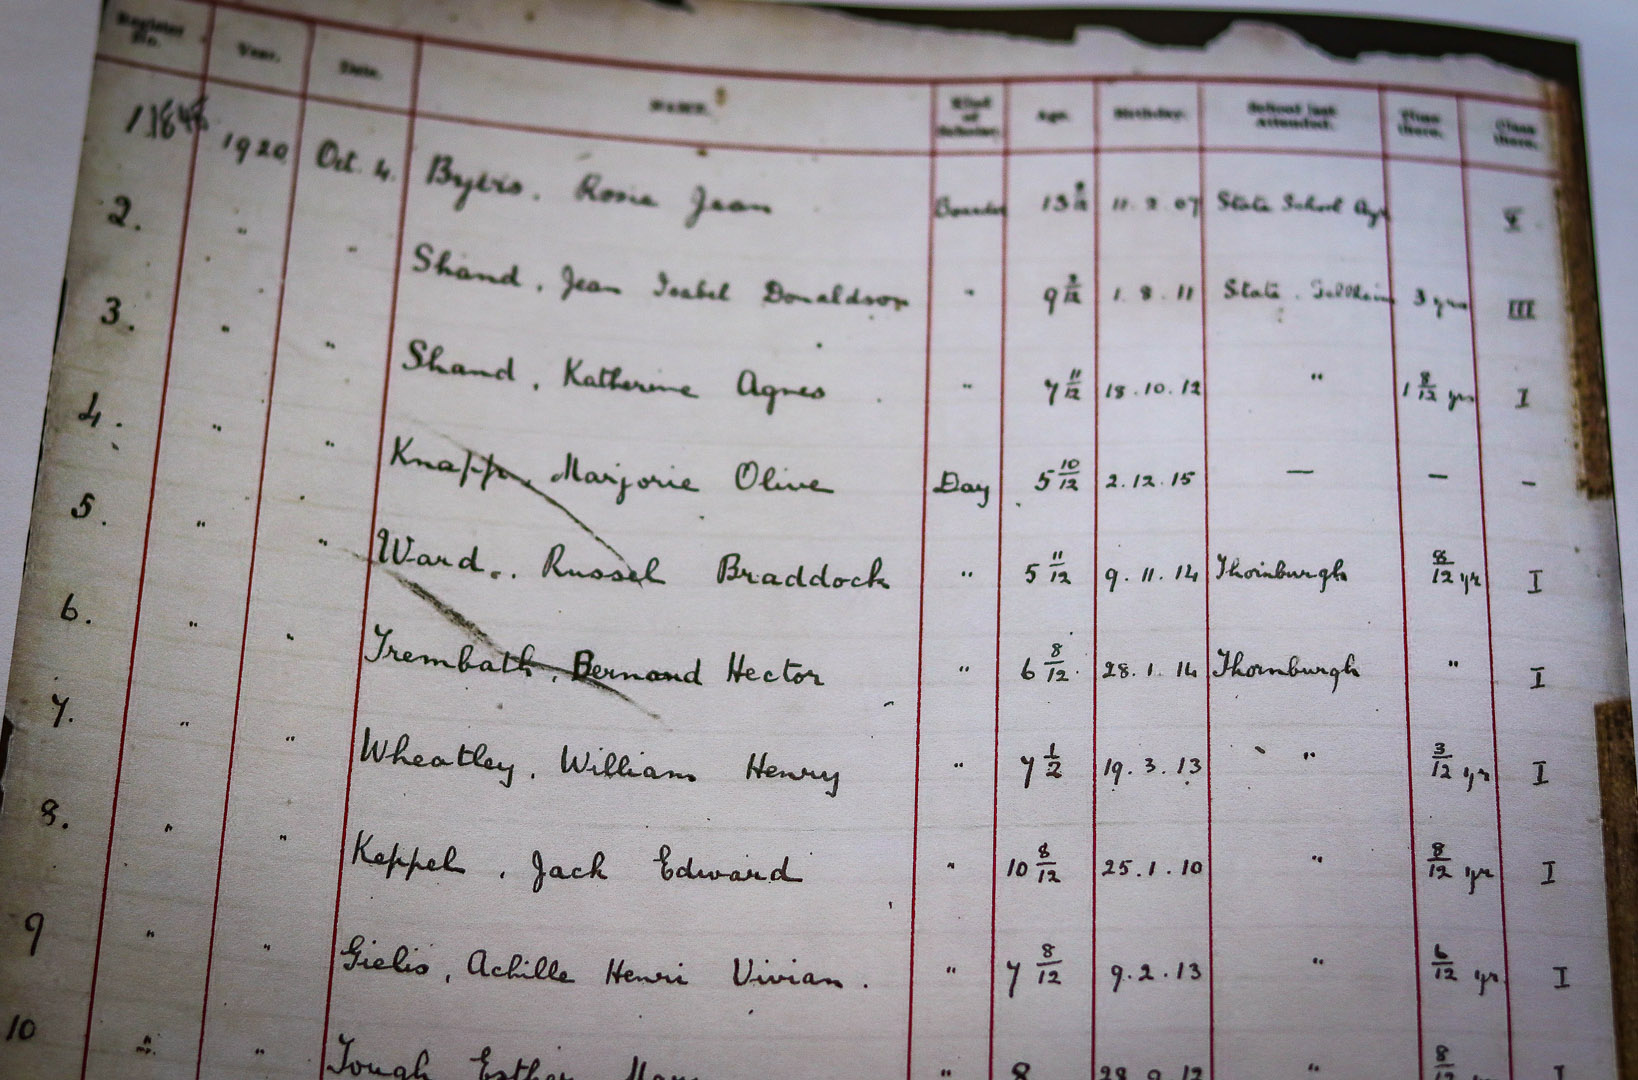 Register No. Year. Date. NAME. Kind of Scholar. Age. Birthday. School last attended. Time there. Class there.
1920 Oct. 4. Byers, Rosie Jean Boarder 13 8/12 11. 2. 07 State School Ayr V
2. " " Shand, Jean Isabel Donaldson " 9 2/12 1. 8. 11 State. Sellheim 3 yrs III
3. " " Shand, Katherine Agnes " 7 11/12 18. 10. 12 " 1 8/12 yrs I
4. " " Knapp, Marjorie Olive Day 5 10/12 2. 12. 15 — — –
5. " " Ward, Russel Braddock " 5 11/12 9. 11. 14 Thornburgh 8/12 yr I
6. " " Trembath, Bernard Hector " 6 8/12 28. 1. 14 Thornburgh " I
7. " " Wheatley, William Henry " 7 1/2 19. 3. 13 " 3/12 yr I
8. " " Keppel, Jack Edward " 10 8/12 25. 1. 10 " 8/12 yr I
9 " " Gielis, Achille Henri Vivian. " 7 8/12 9. 2. 13 " 6/12 yr. I
10 " " Tough Esther Mary " 8 28 9 12 " 8/12 I